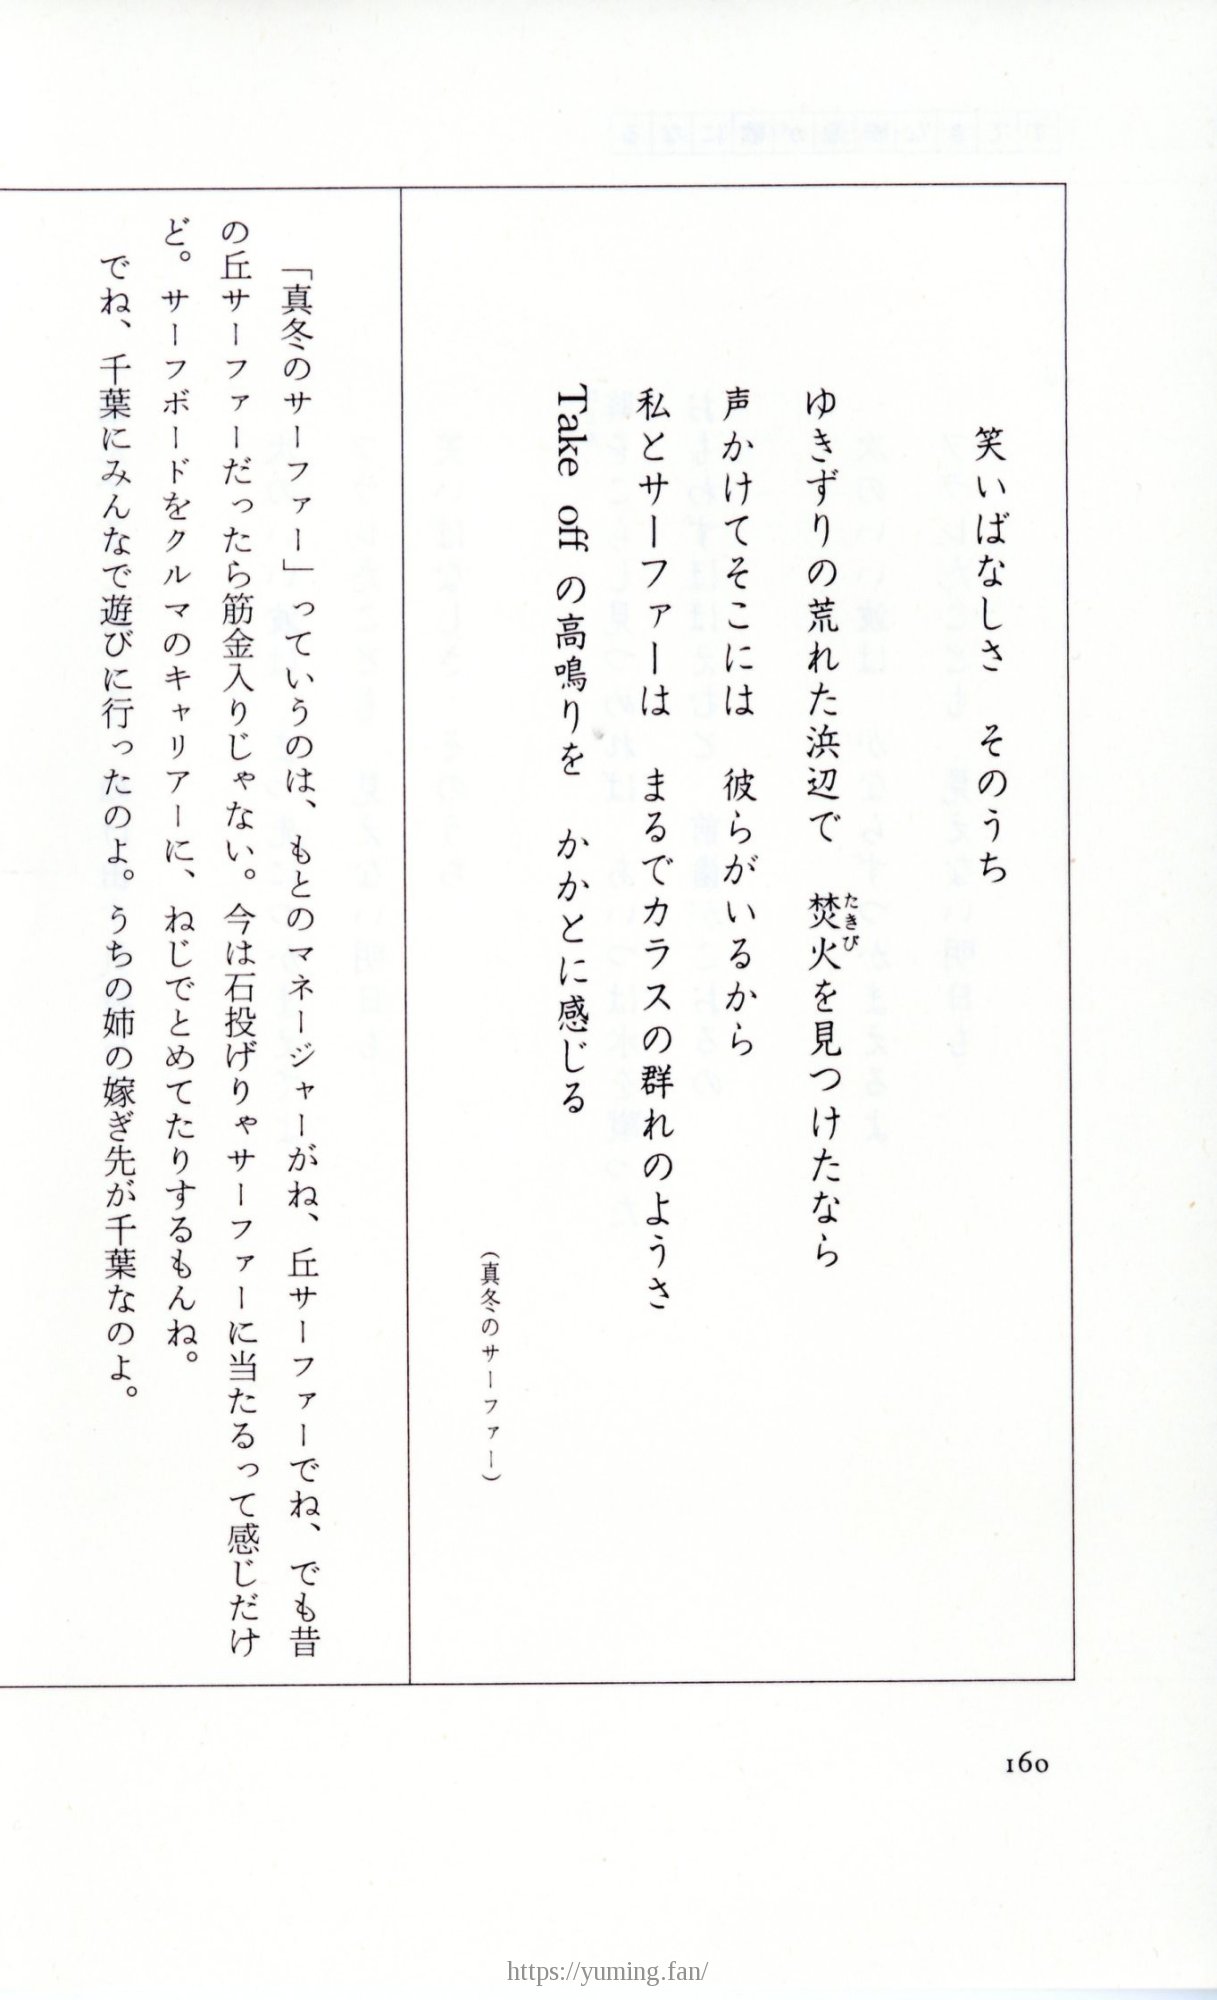 笑いばなしさ　そのうち
ゆきずりの荒れた浜辺で　焚火を見つけたなら
たきび
声かけてそこには　彼らがいるから
私とサーファーは　まるでカラスの群れのようさ
Take off の高鳴りを　かかとに感じる
（真冬のサーファー）
「真冬のサーファー」っていうのは、もとのマネージャーがね、丘サーファーでね、でも昔
の丘サーファーだったら筋金入りじゃない。今は石投げりゃサーファーに当たるって感じだけ
ど。サーフボードをクルマのキャリアーに、ねじでとめてたりするもんね。
でね、千葉にみんなで遊びに行ったのよ。うちの姉の嫁ぎ先が千葉なのよ。
160
https://yuming.fan/